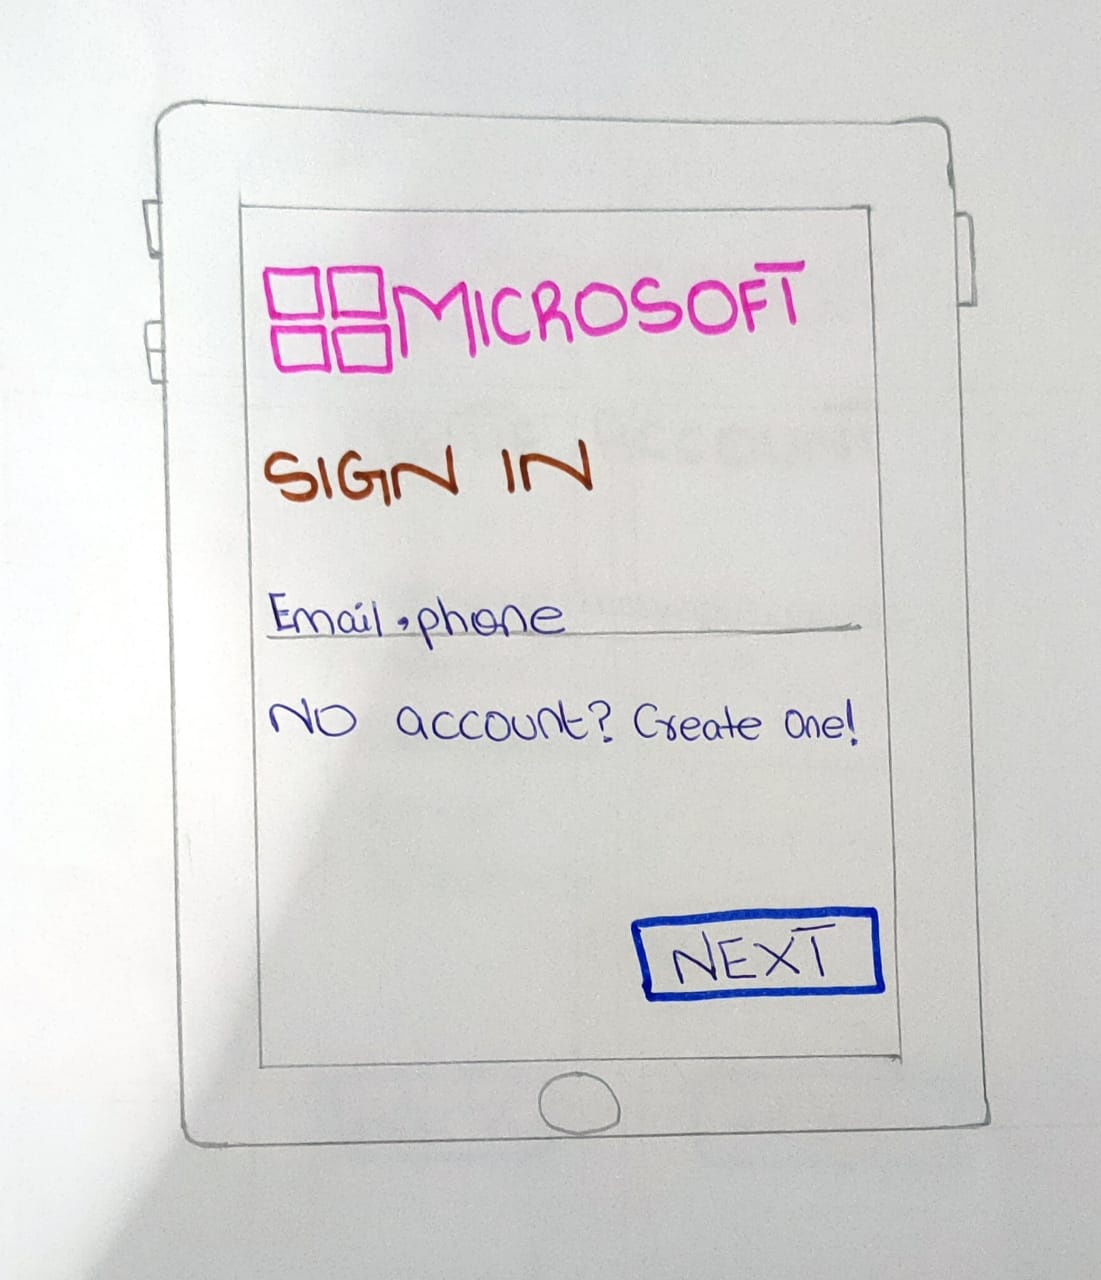 MICROSOFT
SIGN IN
Email, phone
NO account? Create one!
NEXT